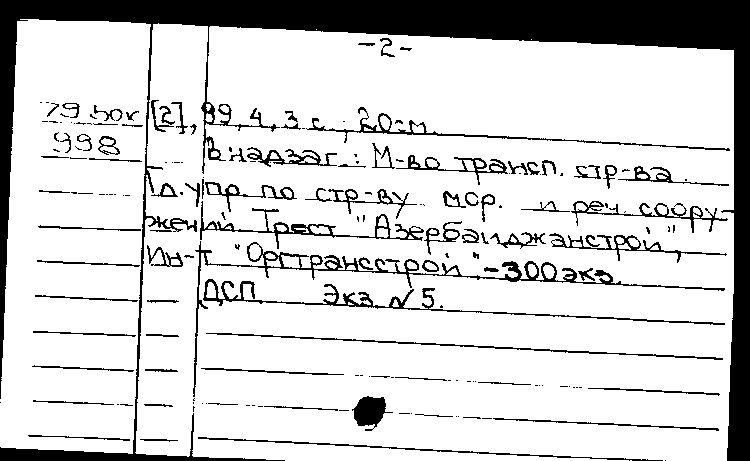 -2-
79 50к [2], 99, 4, 3 с.; 20 см.
998 В надзаг.: М-во трансп. стр-ва.
Гл. упр. по стр-ву мор. и реч. соору-
жений Трест "Азербайджанстрой",
Ин-т "Оргтрансстрой". - 300 экз.
ДСП. Экз. № 5.